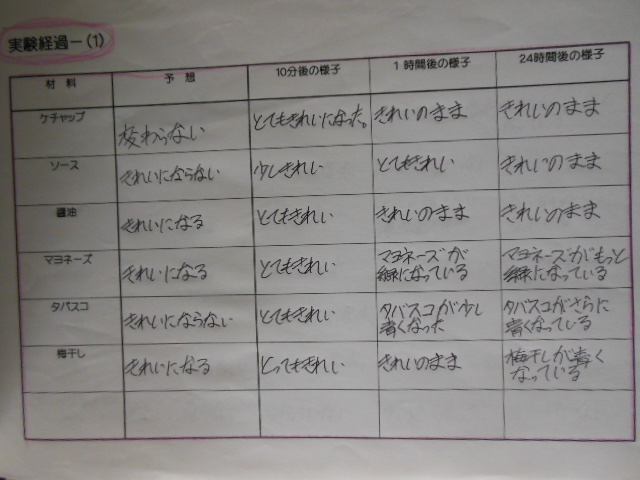 実験経過ー(1)
材料 予想 10分後の様子 1時間後の様子 24時間後の様子
ケチャップ 変わらない とてもきれいになった。 きれいのまま きれいのまま
ソース きれいにならない 少しきれい とてもきれい きれいのまま
醤油 きれいになる とてもきれい きれいのまま きれいのまま
マヨネーズ きれいになる とてもきれい マヨネーズが マヨネーズがもっと
緑になっている 緑になっている
タバスコ きれいにならない とてもきれい タバスコが少し タバスコがさらに
青くなった 青くなっている
梅干し きれいになる とってもきれい きれいのまま 梅干しが青く
なっている